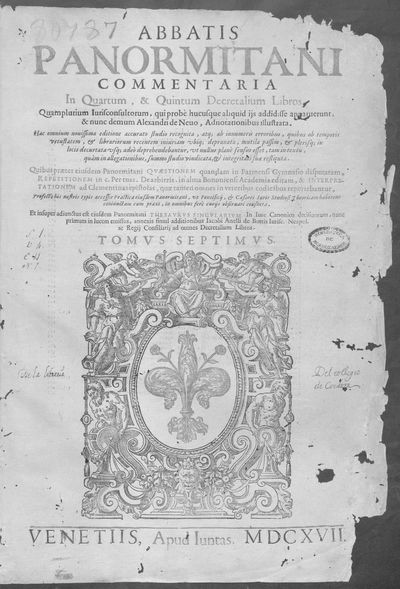 80787
ABBATIS
PANORMITANI
COMMENTARIA
In Quartum, & Quintum Decretalium Libros,
Quamplurium Iurisconsultorum, qui probè hucusque aliquid ijs addidisse apparuerunt,
& nunc demum Alexandri de Neuo, Adnotationibus illustrata.
Hac omnium nouissima editione accurato studio recognita, atq; ab innumeris erroribus, quibus ob temporis
vetustatem, & librariorum recentem iniuriam vbiq; deprauata, mutila passim, & plerisq; in
locis decurtata vsq; adeò deprehendebantur, vt nullus planè sensus esset, tam in textu,
quàm in allegationibus, summo studio vindicata, & integritati suæ restituta.
Quibus præter eiusdem Panormitani QVÆSTIONEM quandam in Parmensi Gymnasio disputatam,
REPETITIONEM in c. Per tuas. De arbitris. in alma Bononiensi Academia editam, & INTERPRE-
TATIONEM ad Clementinas epistolas, quæ tamen omnes in veteribus codicibus reperiebantur,
Et insuper adiunctus est eiusdem Panormitani THESAVRVS SINGVLARIVM In Iure Canonico decisiuorum, nunc
primum in lucem emissus, annexis simul additionibus Iacobi Anelli de Bottis Iurisc. Neapol.
ac Regij Consiliarij ad omnes Decretalium Libros.
TOMVS SEPTIMVS.
De la libreria
Del collegio
de Cordova
VENETIIS, Apud Iuntas. MDCXVII.